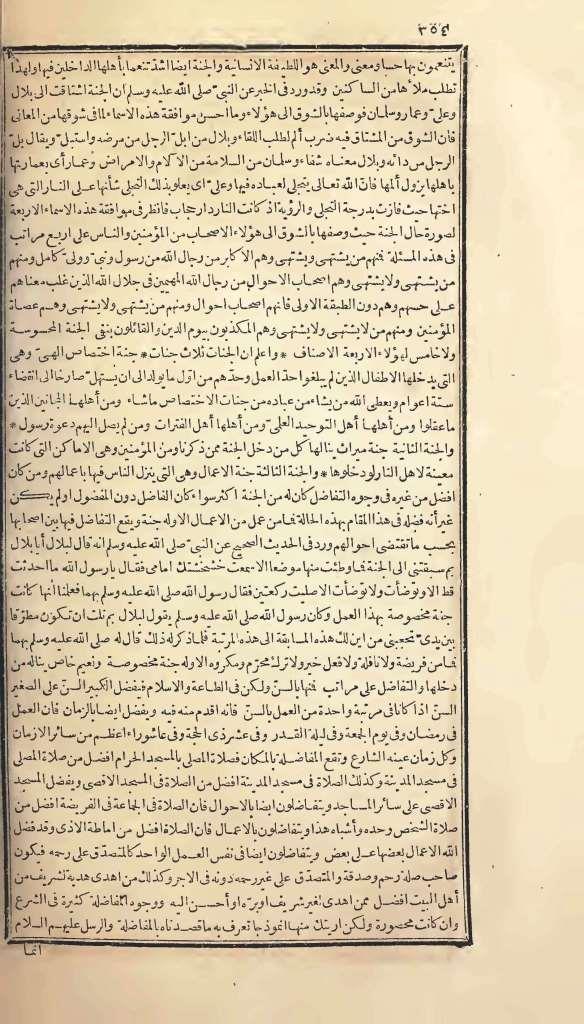 ٣٥٤
يتنعمون بها حسا ومعنى والمعنى هو اللطيفة الانسانية والجنة ايضا اشد تنعما بأهلها الداخلين فيها ولهذا
تطلب ملأها من الساكنين وقد ورد في الخبر عن النبي صلى الله عليه وسلم ان الجنة اشتاقت الى بلال
وعلى وعمار وسلمان فوصفها بالشوق الى هؤلاء وما احسن موافقة هذه الاسماء لما في شوقها من المعانى
فان الشوق من المشتاق فيه ضرب ألم لطلب اللقاء وبلال من ابلّ الرجل من مرضه واستبل ويقال بلّ
الرجل من دائه وبلال معناه شفاء وسلمان من السلامة من الآلام والامراض وعمار أى بعمارتها
بأهلها يزول ألمها فانّ الله تعالى يتجلى لعباده فيها وعلى اى يعلو بذلك التجلى شأنها على النار التى هى
اختها حيث فازت بدرجة التجلى والرؤية اذ كانت النار دار حجاب فانظر فى موافقة هذه الاسماء الاربعة
لصورة حال الجنة حيث وصفها بالشوق الى هؤلاء الاصحاب من المؤمنين والناس على اربع مراتب
فى هذه المسئلة فمنهم من يشتهى ويشتهى وهم الاكابر من رجال الله من رسول ونبى وولى كامل ومنهم
من يشتهى ولا يشتهى وهم اصحاب الاحوال من رجال الله المهيمين فى جلال الله الذين غلب معناهم
على حسهم وهم دون الطبقة الاولى فانهم اصحاب احوال ومنهم من يشتهى ولا يشتهى وهم عصاة
المؤمنين ومنهم من لا يشتهى ولا يشتهى وهم المكذبون بيوم الدين والقائلون بنفى الجنة المحسوسة
ولا خامس لهؤلاء الاربعة الاصناف * واعلم ان الجنات ثلاث جنات * جنة اختصاص الهى وهى
التى يدخلها الاطفال الذين لم يبلغوا حدّ العمل وحدّهم من اوّل ما يولد الى ان يستهل صارخا الى انقضاء
ستة اعوام ويعطى الله من يشاء من عباده من جنات الاختصاص ما شاء ومن أهلها المجانين الذين
ما عقلوا ومن أهلها أهل التوحيد العلمى ومن أهلها أهل الفترات ومن لم يصل اليهم دعوة رسول *
والجنة الثانية جنة ميراث ينالها كل من دخل الجنة ممن ذكرنا ومن المؤمنين وهى الاماكن التى كانت
معينة لاهل النار لو دخلوها * والجنة الثالثة جنة الاعمال وهى التى ينزل الناس فيها باعمالهم ومن كان
افضل من غيره فى وجوه التفاضل كان له من الجنة اكثر سواء كان الفاضل دون المفضول أو لم يكن
غير أنه فضله فى هذا المقام بهذه الحالة فما من عمل من الاعمال الا وله جنة ويقع التفاضل فيها بين اصحابها
بحسب ما تقتضى احوالهم ورد فى الحديث الصحيح عن النبى صلى الله عليه وسلم انه قال لبلال أيا بلال
بم سبقتنى الى الجنة فما وطئت منها موضعا الا سمعت خشخشتك امامى فقال يا رسول الله ما احدثت
قط الا وتوضأت ولا توضأت الا صليت ركعتين فقال رسول الله صلى الله عليه وسلم بهما فعلمنا انها كانت
جنة مخصوصة بهذا العمل وكان رسول الله صلى الله عليه وسلم يقول لبلال بم نلت ان تكون مطرّقا
بين يدىّ تحجبنى من اين لك هذه المسابقة الى هذه المرتبة فلما ذكر له ذلك قال له صلى الله عليه وسلم بهما
فما من فريضة ولا نافلة ولا فعل خير ولا ترك محرّم ومكروه الا وله جنة مخصوصة ونعيم خاص يناله من
دخلها والتفاضل على مراتب فمنها بالسنّ ولكن فى الطاعة والاسلام فيفضل الكبير السنّ على الصغير
السنّ اذا كانا فى مرتبة واحدة من العمل بالسنّ فانه اقدم منه فيه ويفضل ايضا بالزمان فان العمل
فى رمضان وفى يوم الجمعة وفى ليلة القدر وفى عشر ذى الحجة وفى عاشوراء اعظم من سائر الازمان
وكل زمان عينه الشارع وتقع المفاضلة بالمكان فصلاة المصلى بالمسجد الحرام افضل من صلاة المصلى
فى مسجد المدينة وكذلك الصلاة فى مسجد المدينة افضل من الصلاة فى المسجد الاقصى ويفضل المسجد
الاقصى على سائر المساجد ويتفاضلون ايضا بالاحوال فان الصلاة فى الجماعة فى الفريضة افضل من
صلاة الشخص وحده وأشباه هذا ويتفاضلون بالاعمال فان الصلاة افضل من اماطة الاذى وقد فضل
الله الاعمال بعضها على بعض ويتفاضلون ايضا فى نفس العمل الواحد كالمتصدّق على رحمه فيكون
صاحب صلة رحم وصدقة والمتصدّق على غير رحمه دونه فى الاجر وكذلك من اهدى هدية لشريف من
أهل البيت افضل ممن اهدى لغير شريف أو برّه أو أحسن اليه ووجوه المفاضلة كثيرة فى الشرع
وان كانت محصورة ولكن اريتك منها انموذجا تعرف به ما قصدناه بالمفاضلة والرسل عليهم السلام
انما